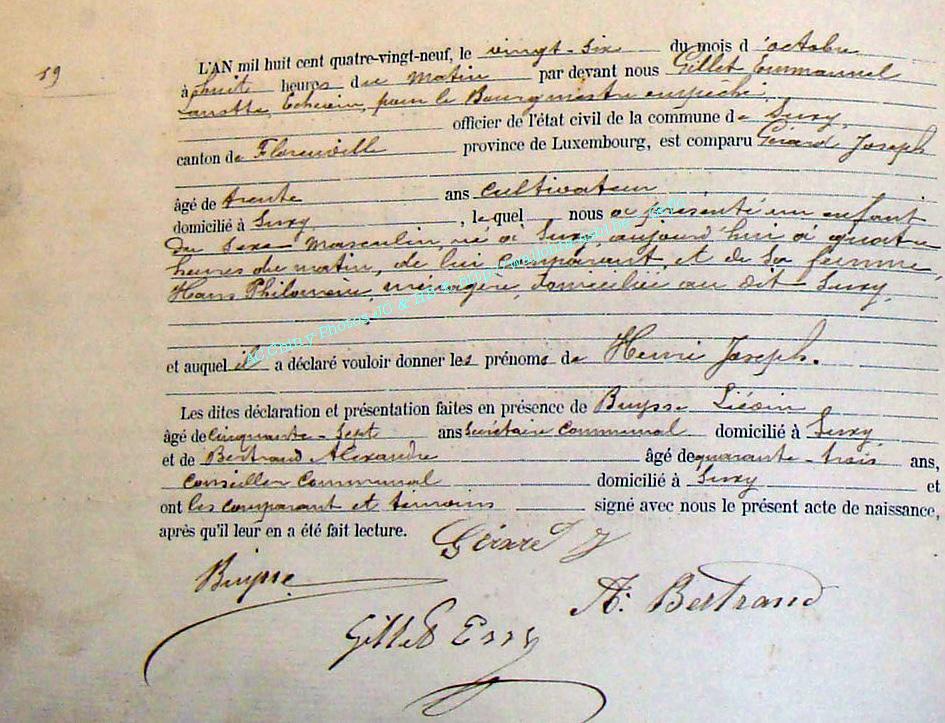 19
L'AN mil huit cent quatre-vingt-neuf, le vingt-six du mois d'octobre
à huit heures du matin par devant nous Gillet Emmanuel
Echevin, pour le Bourgmestre empêché,
officier de l'état civil de la commune de Suxy,
canton de Florenville province de Luxembourg, est comparu Gérard Joseph
âgé de trente ans cultivateur
domicilié à Suxy, lequel nous a présenté un enfant
du sexe masculin, né à Suxy, aujourd'hui à quatre
heures du matin, de lui comparant et de sa femme,
Hans Philomène, ménagère, domiciliée au dit Suxy,
et auquel il a déclaré vouloir donner les prénoms de Henri Joseph.
Les dites déclaration et présentation faites en présence de Buysse Liévin
âgé de cinquante-sept ans Secrétaire communal domicilié à Suxy
et de Bertrand Alexandre âgé de quarante-trois ans,
Conseiller communal domicilié à Suxy et
ont les comparant et témoins signé avec nous le présent acte de naissance,
après qu'il leur en a été fait lecture. Gérard J
Buysse
A. Bertrand
Gillet
AC Chiny Photos JO &